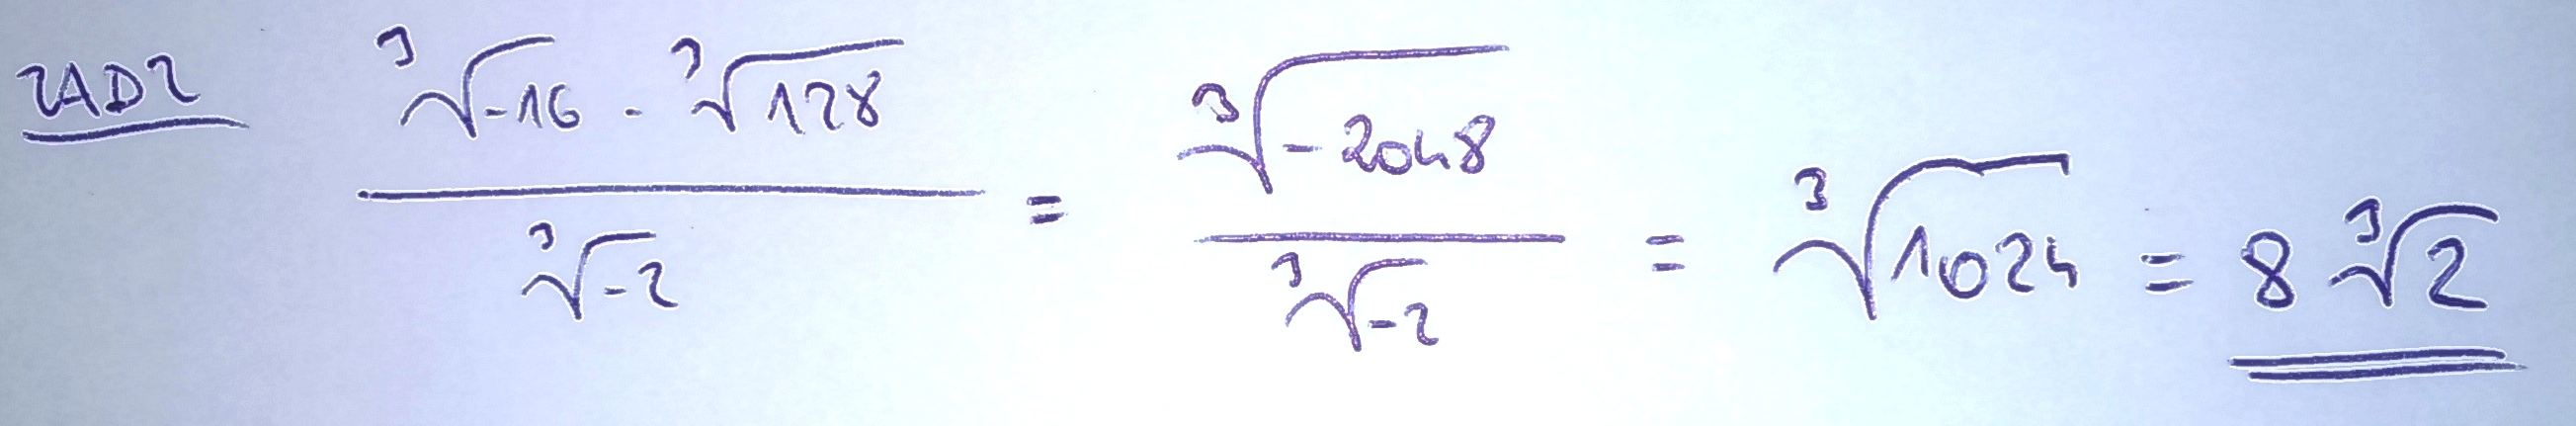 ZAD2 \frac{\sqrt[3]{-16} \cdot \sqrt[3]{128}}{\sqrt[3]{-2}} = \frac{\sqrt[3]{-2048}}{\sqrt[3]{-2}} = \sqrt[3]{1024} = 8\sqrt[3]{2}